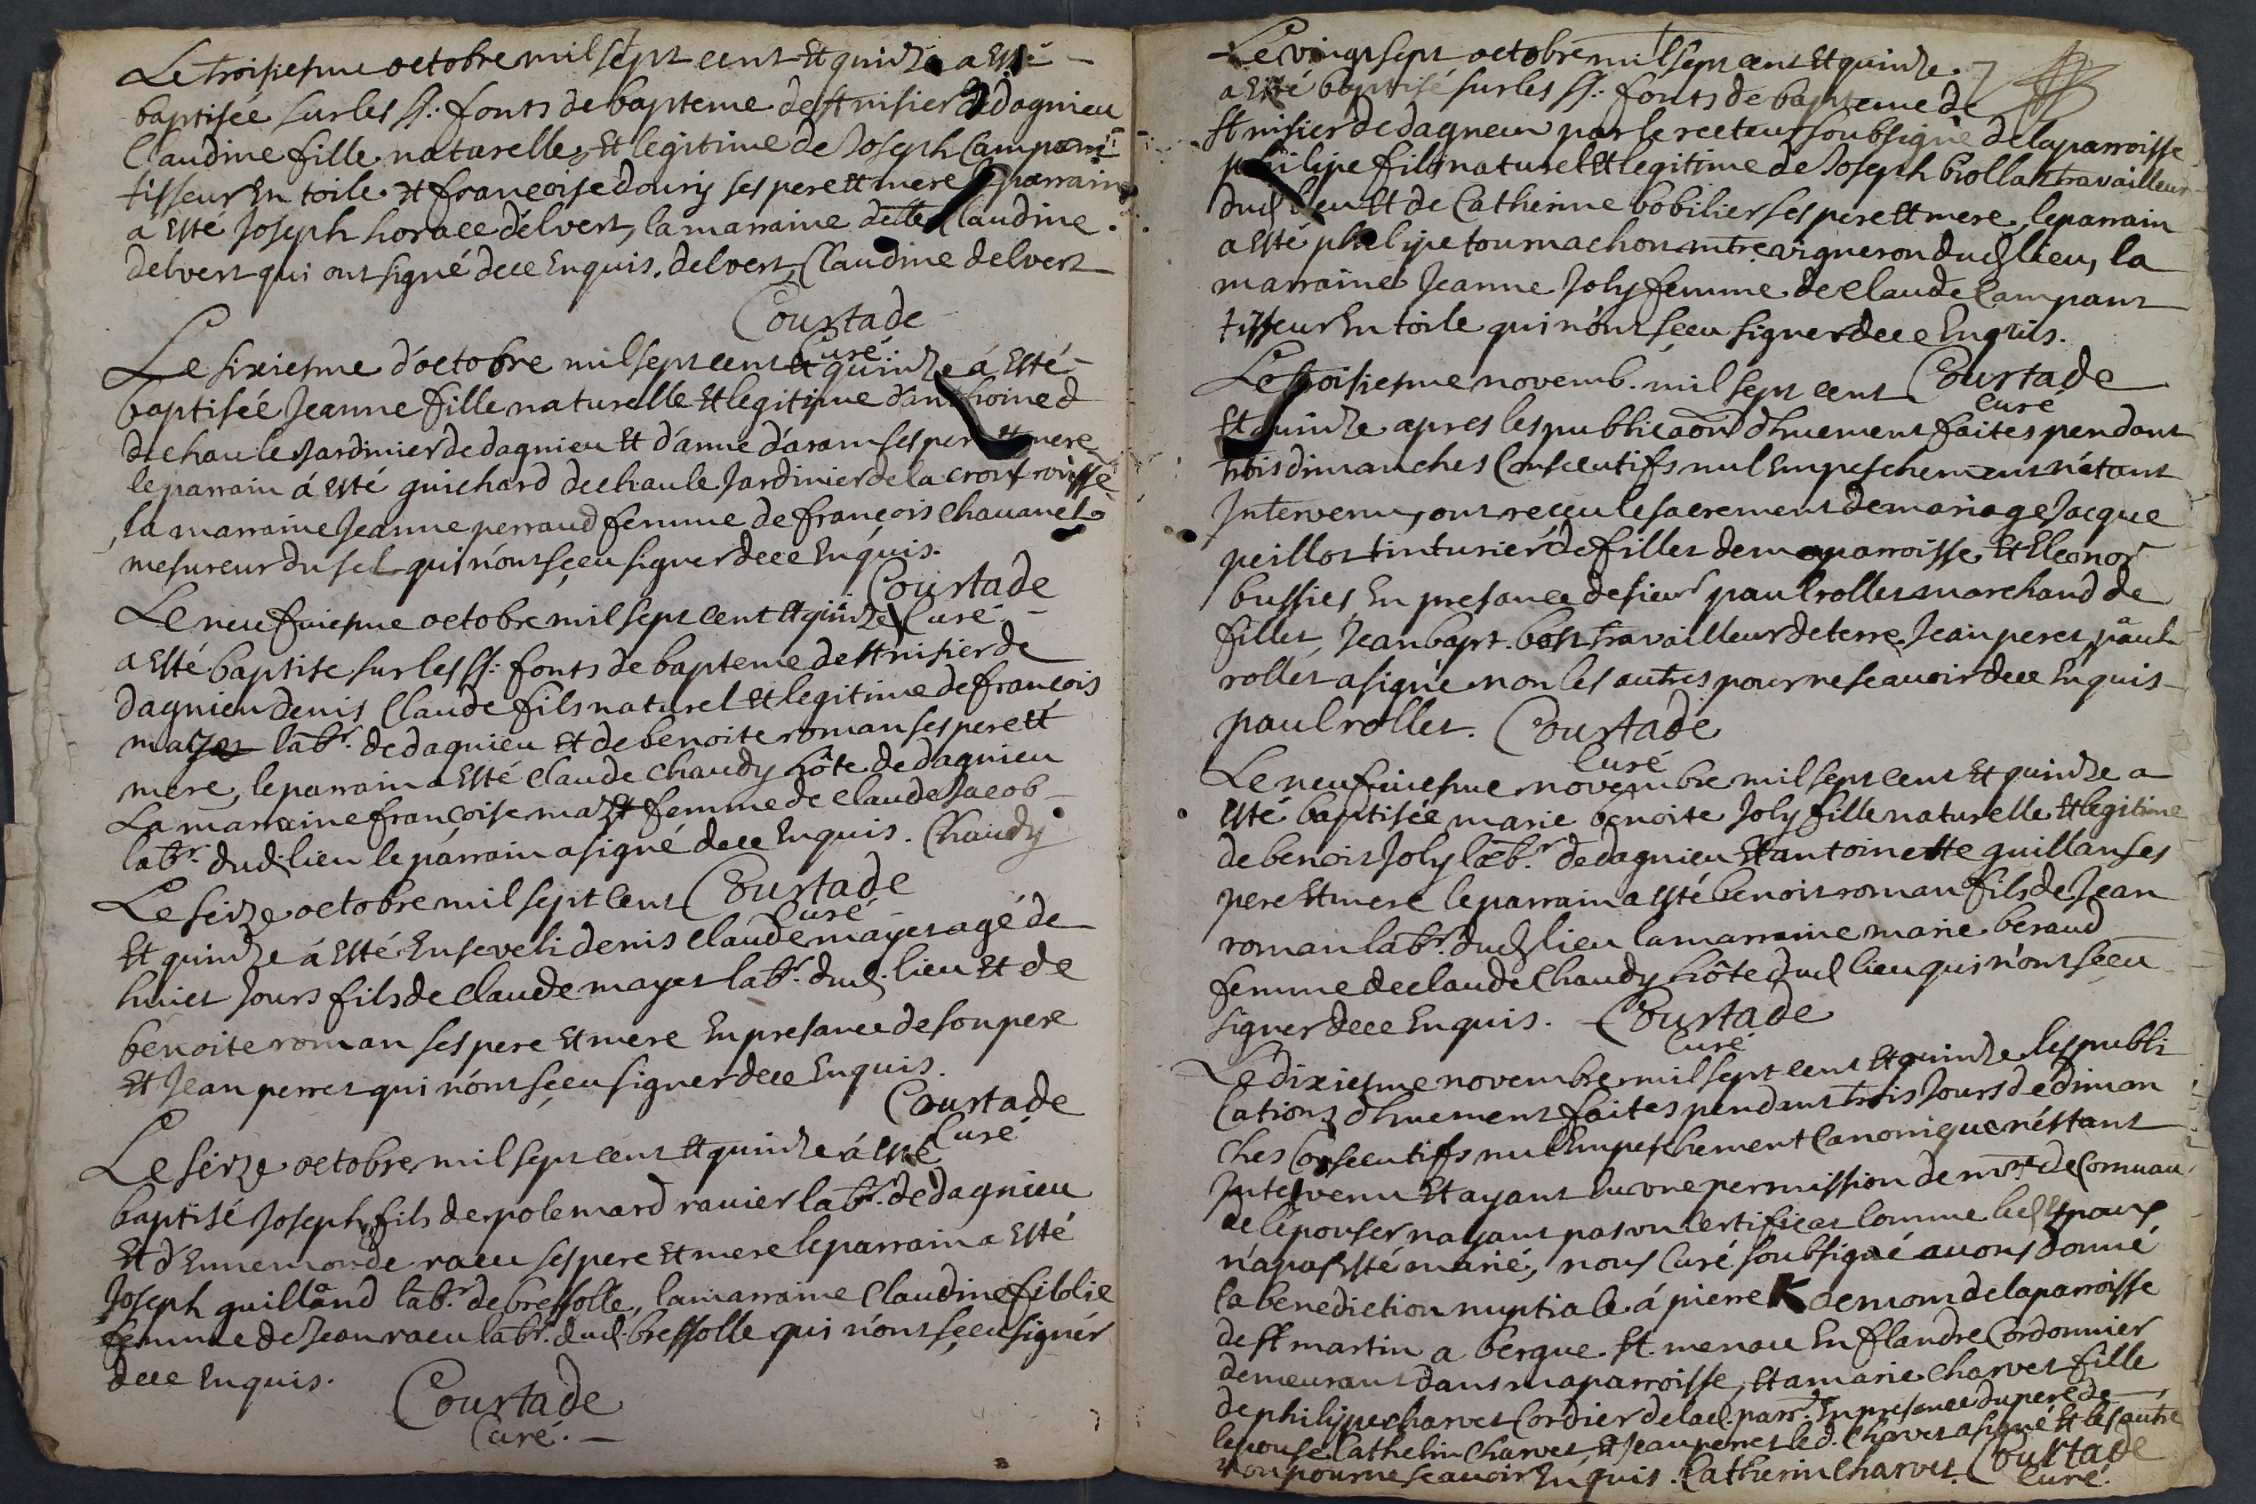 Le troisiesme octobre mil sept cent Et quinze a Esté
baptisée sur les SS: fonts de bapteme de st nisier de dagnieu
Claudine fille naturelle Et legitime de Joseph Campant
tisseur En toile Et francoise doury ses pere Et mere le parrain
a Esté Joseph horace délvert, la marraine delle Claudine
delvert qui ont signé de ce Enquis. delvert Claudine delvert
Courtade
Curé.
Le sixiesme d'octobre mil sept cent Et quinze á Esté
baptisée Jeanne fille naturelle Et legitime d'anthoine d
dechaule Jardinier de dagnieu Et d'anne d'aram ses pere Et mere
le parrain á Esté guichard dechaule Jardinier de la croix rousse
la marraine Jeanne perraud femme de francois Chavanel
mesureur du sel qui n'ont sçeu signer de ce Enquis.
Courtade
Curé.
Le neufuiesme octobre mil sept cent Et quinze
a Esté baptise sur les SS: fonts de bapteme de st nisier de
dagnieu denis Claude fils naturel Et legitime de francois
mayet labr. de dagnieu Et de benoite roman ses pere Et
mere, le parrain a Esté Claude Chaudy hôte de dagnieu
La marraine francoise mazet femme de Claude Jacob
labr. dud. lieu le parrain a signé de ce Enquis. Chaudy
Courtade
Curé
Le seize octobre mil sept cent
Et quinze á Esté Enseveli denis Claude mayet agé de
huict Jours fils de Claude mayet labr. dud. lieu Et de
benoite roman ses pere Et mere En presance de son pere
Et Jean perret qui n'ont sçeu signer de ce Enquis.
Courtade
Curé
Le seize octobre mil sept cent Et quinze á Esté
baptisé Joseph fils de polemard ravier labr. de dagnieu
Et d'Ennemonde racu ses pere Et mere le parrain a Esté
Joseph guilland labr. de bressolle, la marraine Claudine fillolie
femme de Jean racu labr. dud. bressolle qui n'ont sçeu signer
de ce Enquis.
Courtade
Curé.
Le vingt sept octobre mil sept cent Et quinze
a Esté baptisé sur les SS: fonts de bapteme de
st nisier de dagneu par le recteur soubsigné de la parroisse
philipe fils naturel Et legitime de Joseph brollat travailleur
dud. lieu Et de Catherine bobilier ses pere Et mere, le parrain
a Esté philipe tournachon mtre vigneron dud. lieu, la
marraine Jeanne Joly femme de Claude Campant
tisseur En toile qui n'ont sçeu signer de ce Enquis.
Courtade
Curé
Le troisiesme novemb. mil sept cent
Et quinze apres les publicaons dhuement faites pendant
trois dimanches Consecutifs nul Empeschement n'étant
Intervenu, ont recçu le sacrement de mariage Jacque
peillot tinturier de fillet de ma parroisse Et Eleonor
bussier En presance de sieur paul rollet marchand de
fillet, Jean bapt. bost travailleur de terre Jean peret, paul
rollet a signé non les autres pour ne scavoir de ce Enquis
paul rollet. Courtade
Curé
Le neufuiesme novembre mil sept cent Et quinze a
Esté baptisée marie benoite Joly fille naturelle Et legitime
de benoit Joly labr. de dagnieu Et antoinette guillan ses
pere Et mere le parrain a Esté benoit roman fils de Jean
roman labr. dud. lieu la marraine marie beraud
femme de Claude Chaudy hôte dud. lieu qui n'ont sçeu
signer de ce Enquis. Courtade
Curé
Le dixiesme novembre mil sept cent Et quinze les publi
Cations dhuement faites pendant trois Jours de diman
ches Consecutifs nul Empeschement Canonique n'éstant
Intervenu Et ayant Eu une permission de
de l'épouser nayant pas un Certificat Comme led. Espoux
n'a pas Esté marié, nous Curé soubsigné avons donné
la benediction nuptiale á pierre K de la parroisse
de st martin a bergue st. En flandre Cordonnier
demeurant dans ma parroisse, Et a marie Charvet fille
de philippe charvet Cordier de lad. parr. En presance du pere de
lepouse Cathelin Charvet, Et Jean perret led. Charvet a signé Et les autre
non pour ne scavoir Enquis. Catherin Charvet. Courtade
Curé.